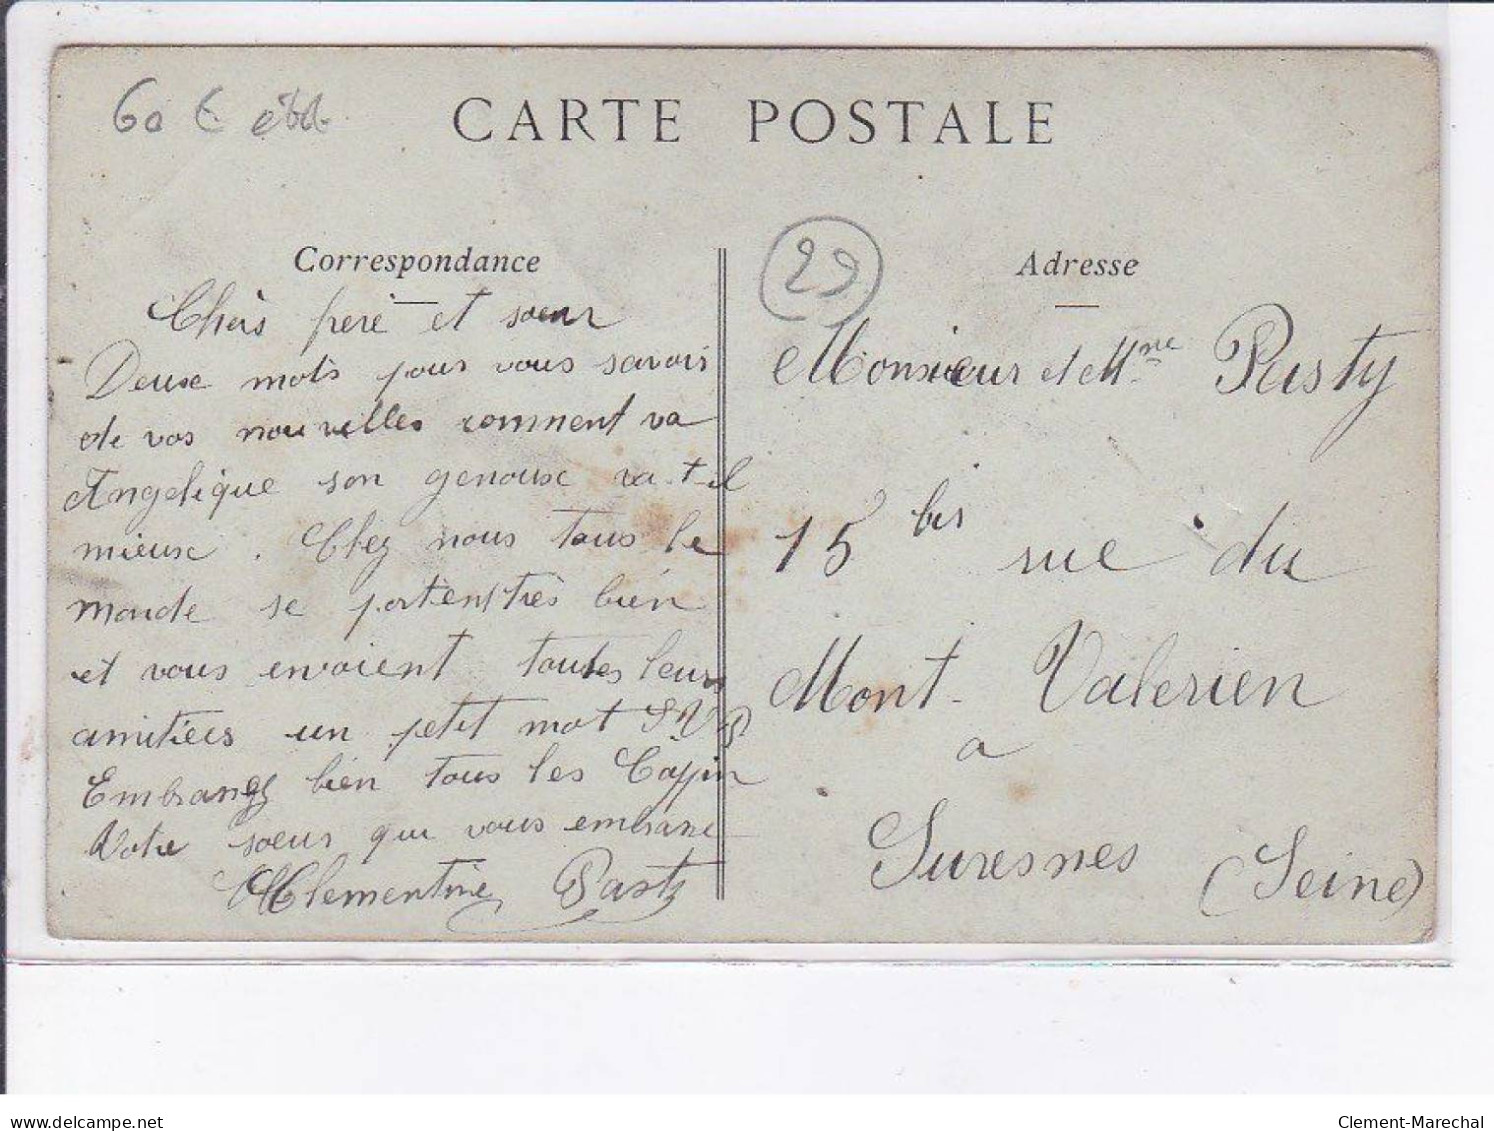 60 €
CARTE POSTALE
Correspondance
Chèrs frère et sœur
Deuxe mots pour vous savoir
de vos nouvelles comment va
Angelique son genouxe va-t-il
mieuxe. Chez nous tous le
monde se portent très bien
et vous envoient toutes leurs
amitiées un petit mot S.V.P
Embrancez bien tous les
Votre soeur qui vous embrance
Clementine Pasty
29
Adresse
Monsieur et Mme Pasty
15 bis rue du
Mont-Valerien
a
Suresnes (Seine)
www.delcampe.net
Clement-Marechal